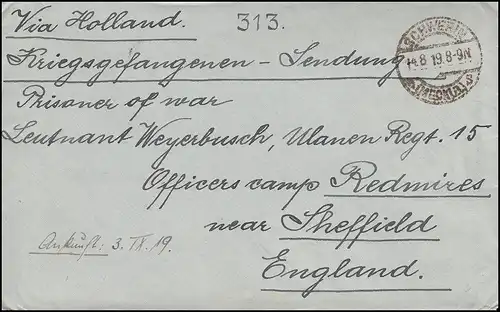 Via Holland.
313.
SCHWERIN
14.8.19.8-9N
(MECKLB)
Kriegsgefangenen - Sendung
Prisoner of war
Leutnant Weyerbusch, Ulanen Regt. 15
Officers camp Redmires
near Sheffield
England.
Ankunft: 3. IX. 19.